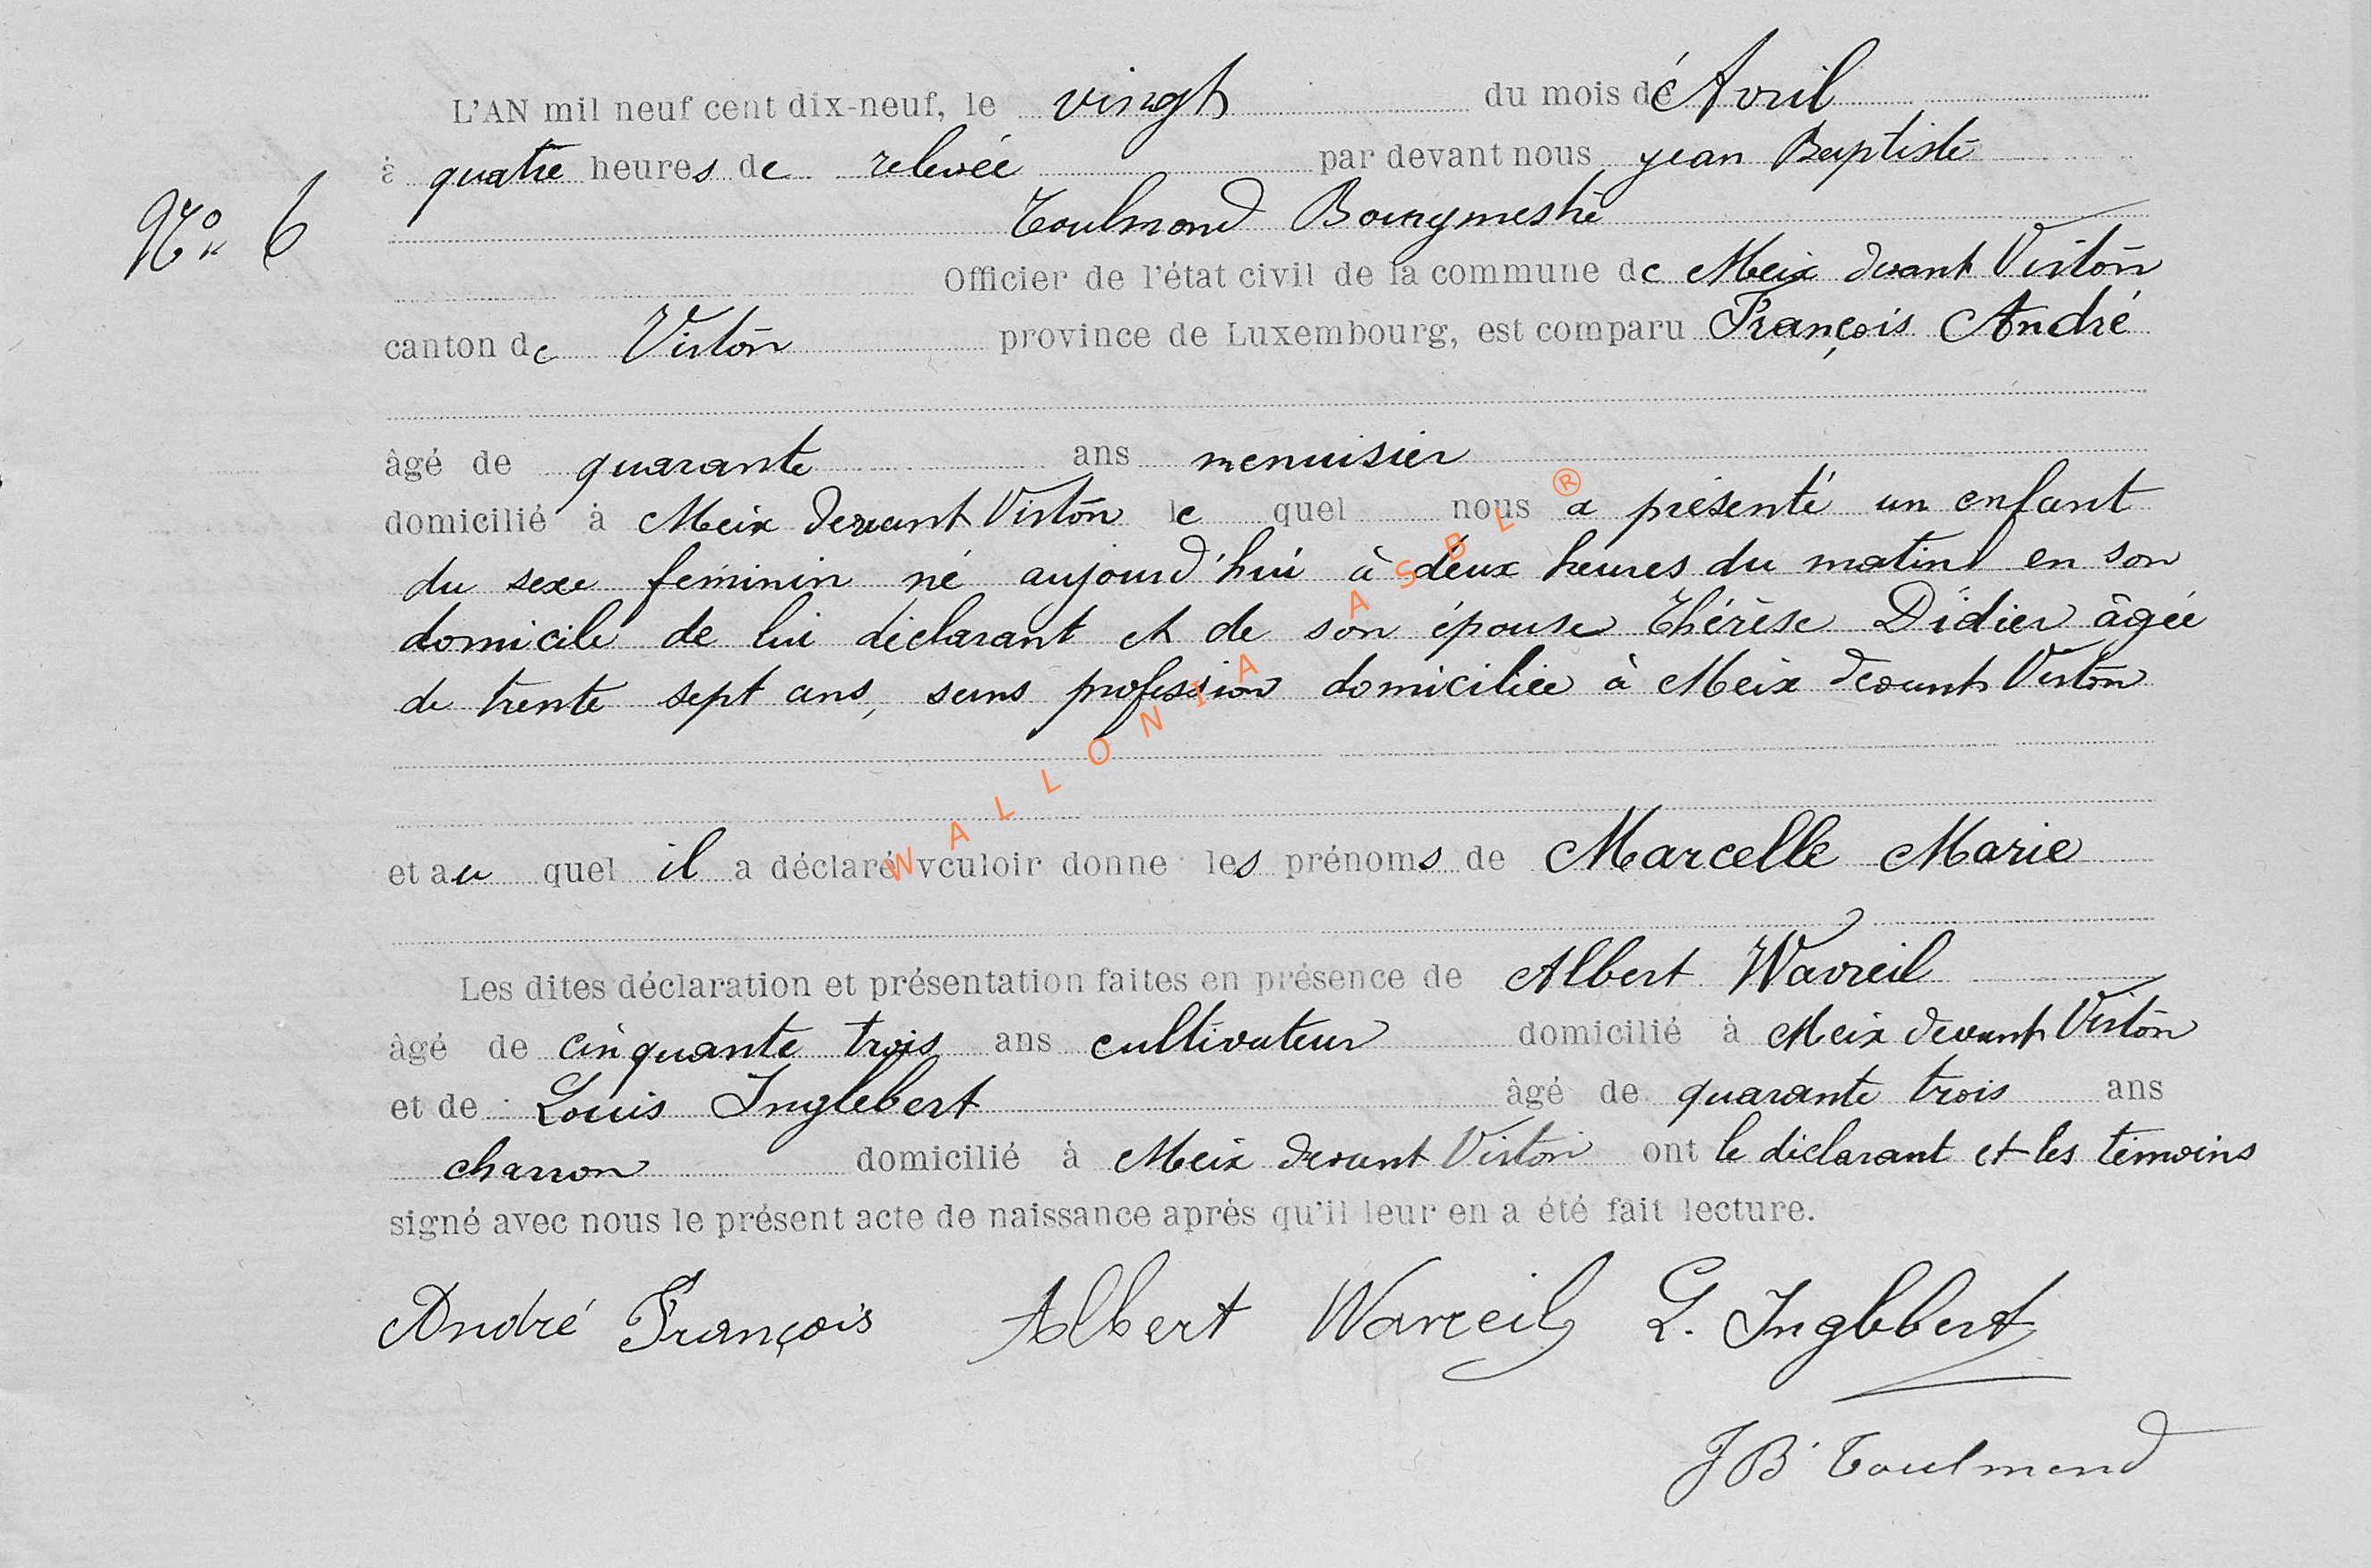 L'AN mil neuf cent dix-neuf, le vingt du mois d'Avril
à quatre heures de relevée par devant nous Jean Baptiste
N° 6
Toulmond Bourgmestre
Officier de l'état civil de la commune de Meix devant Virton
canton de Virton province de Luxembourg, est comparu François André
âgé de quarante ans menuisier
domicilié à Meix devant Virton le quel nous a présenté un enfant
du sexe féminin né aujourd'hui à deux heures du matin en son
domicile de lui déclarant et de son épouse Thérèse Didier âgée
de trente sept ans, sans profession domiciliée à Meix devant Virton
et au quel il a déclaré vouloir donne les prénoms de Marcelle Marie
Les dites déclaration et présentation faites en présence de Albert Wavreil
âgé de cinquante trois ans cultivateur domicilié à Meix devant Virton
et de Louis Inglebert âgé de quarante trois ans
charron domicilié à Meix devant Virton ont le déclarant et les témoins
signé avec nous le présent acte de naissance après qu'il leur en a été fait lecture.
André François Albert Wavreil L. Inglebert
JB Toulmond
WALLONIA ASBL ®